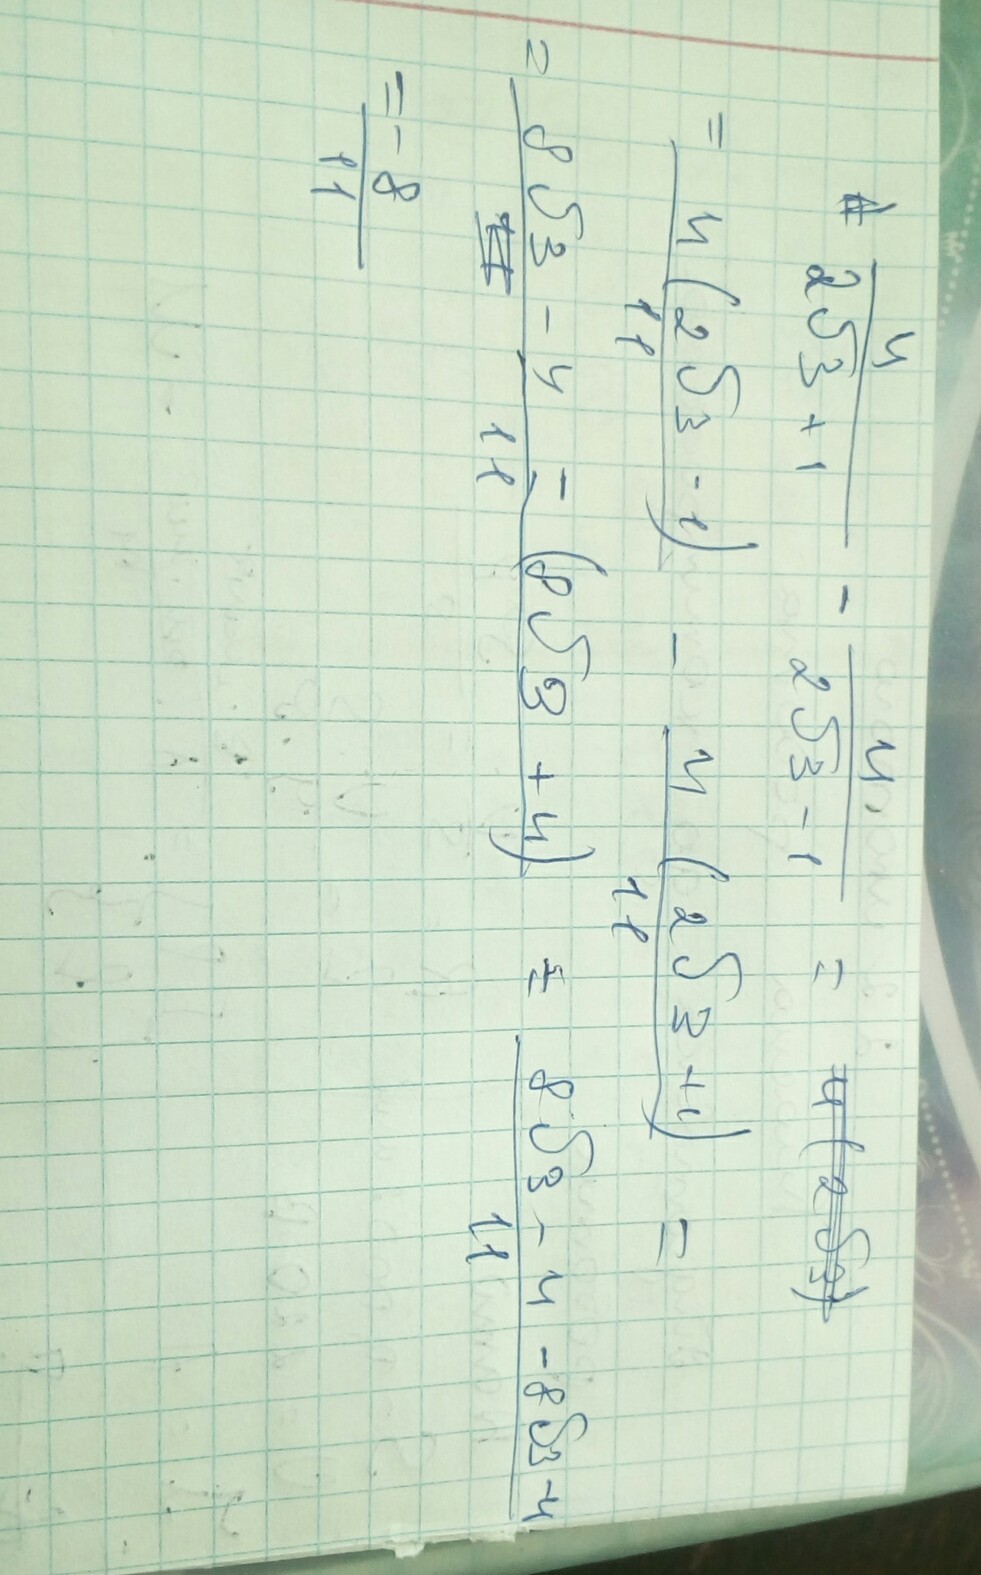 4/(2√3+1) - 4/(2√3-1) = 4(2√3)
= 4(2√3-1)/11 - 4(2√3+1)/11 =
= (8√3-4-(8√3+4))/11 = (8√3-4-8√3-4)/11
= -8/11